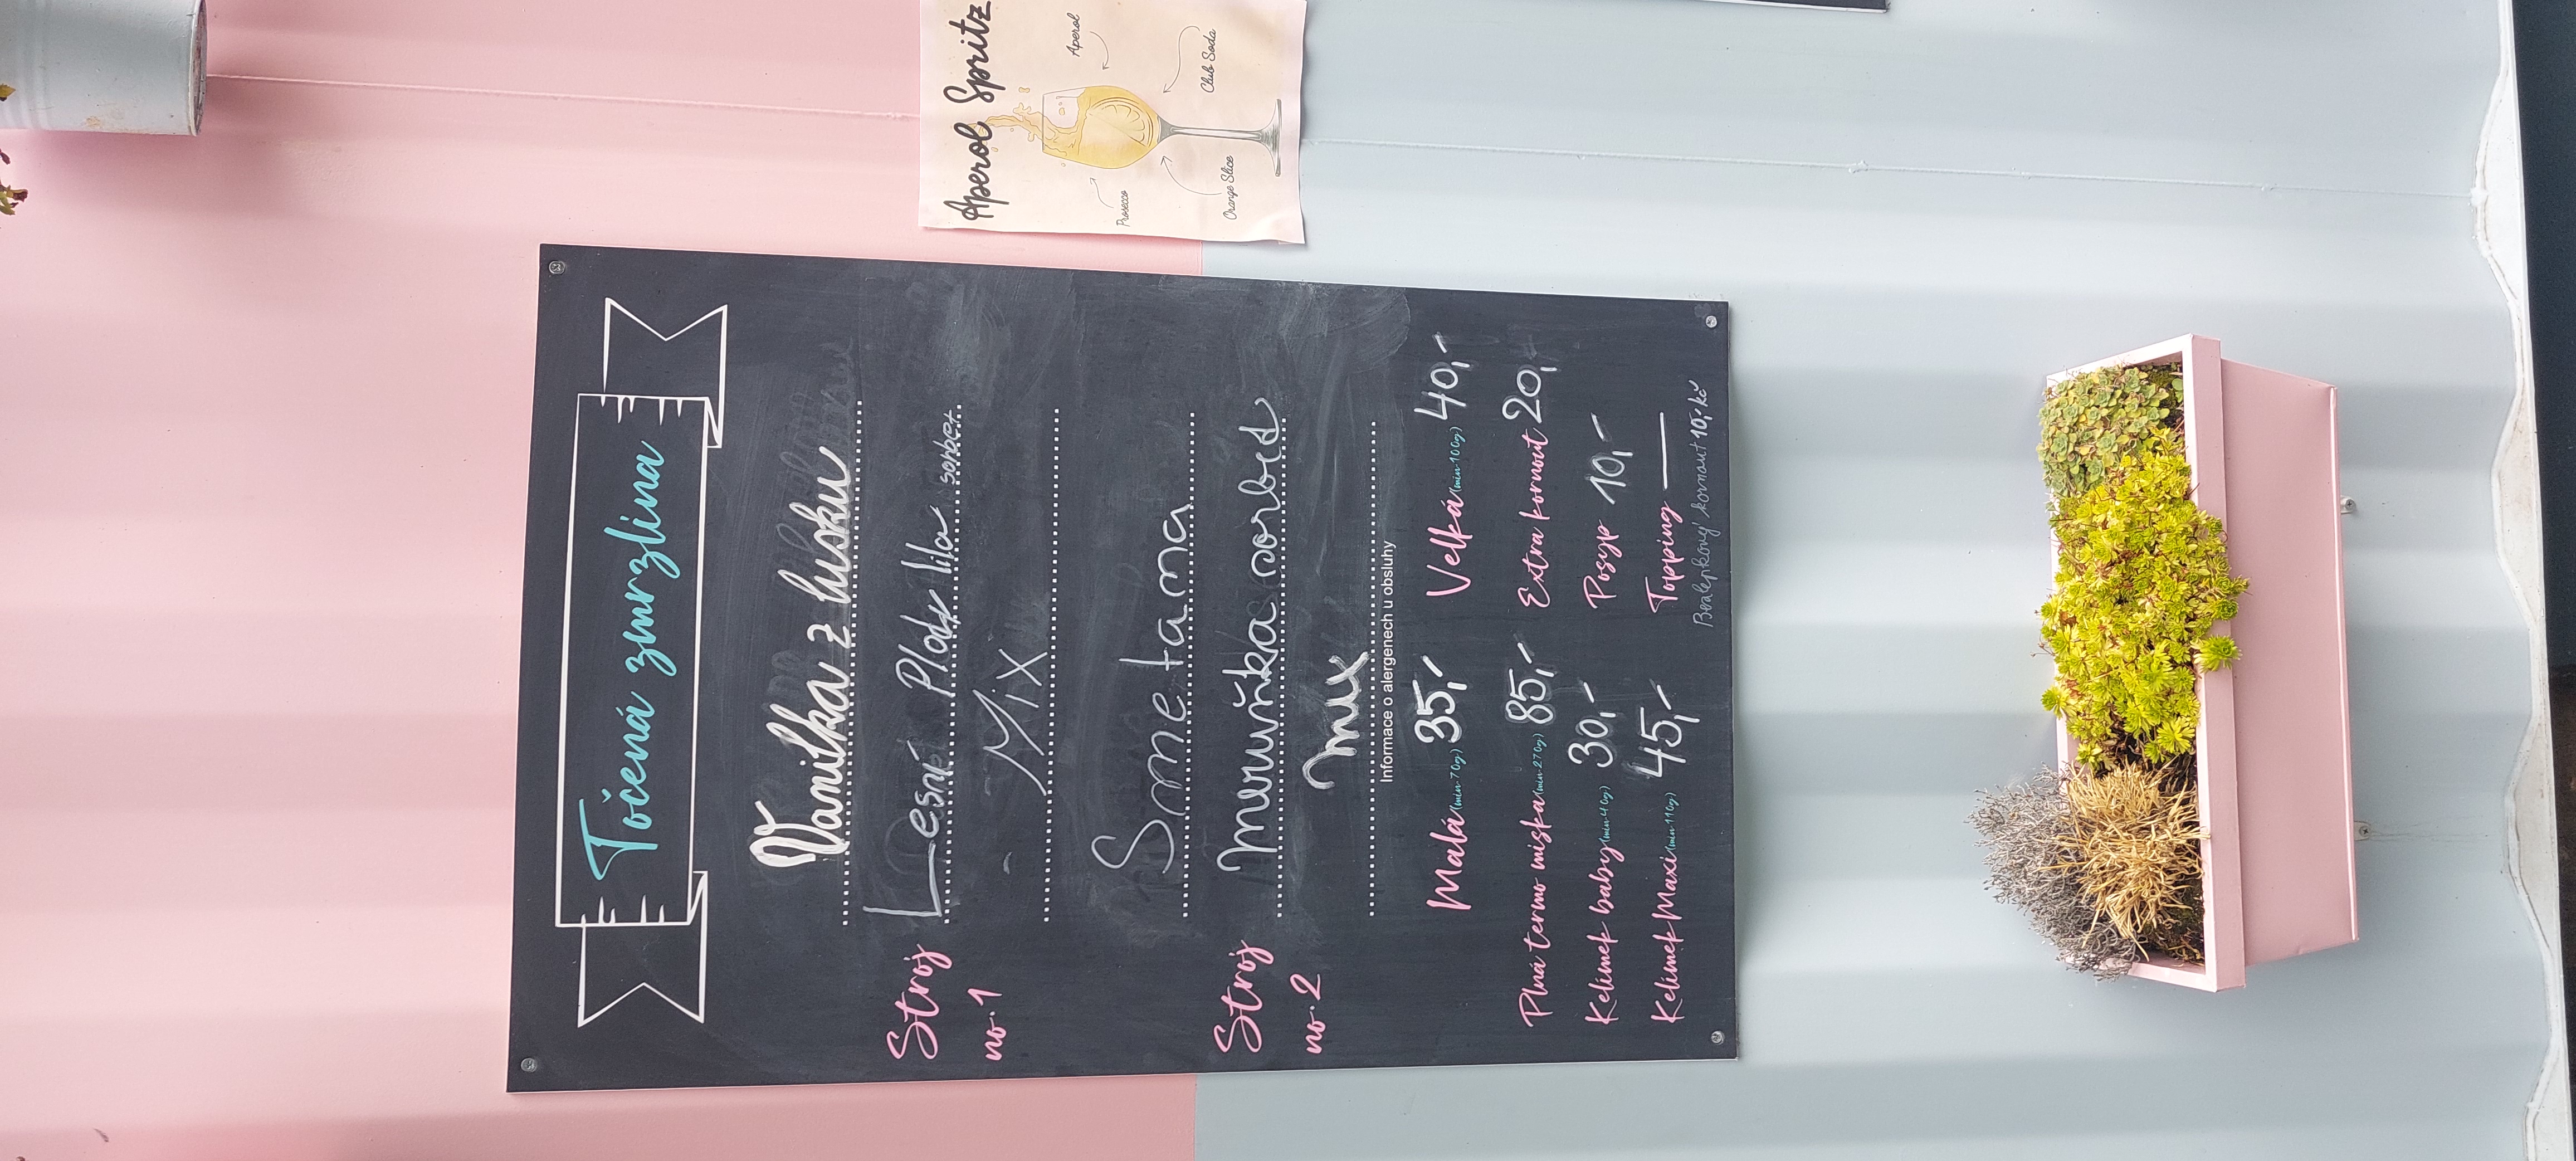 Točená zmrzlina
Stroj no. 1
Vanilka z lusku
Lesní Plody lila sorbet
Mix
Stroj no. 2
Smetama
meruňka sorbet
mix
Informace o alergenech u obsluhy
Malá (min 70g) 35,-
Velká (min 100g) 40,-
Plná termo miska (min 270g) 85,-
Extra kornout 20,-
Kelímek baby (min 40g) 30,-
Posyp 10,-
Kelímek Maxi (min 110g) 45,-
Topping —
Bezlepkový kornout 10,- kč
Aperol Spritz
Aperol
Prosecco
Club Soda
Orange Slice